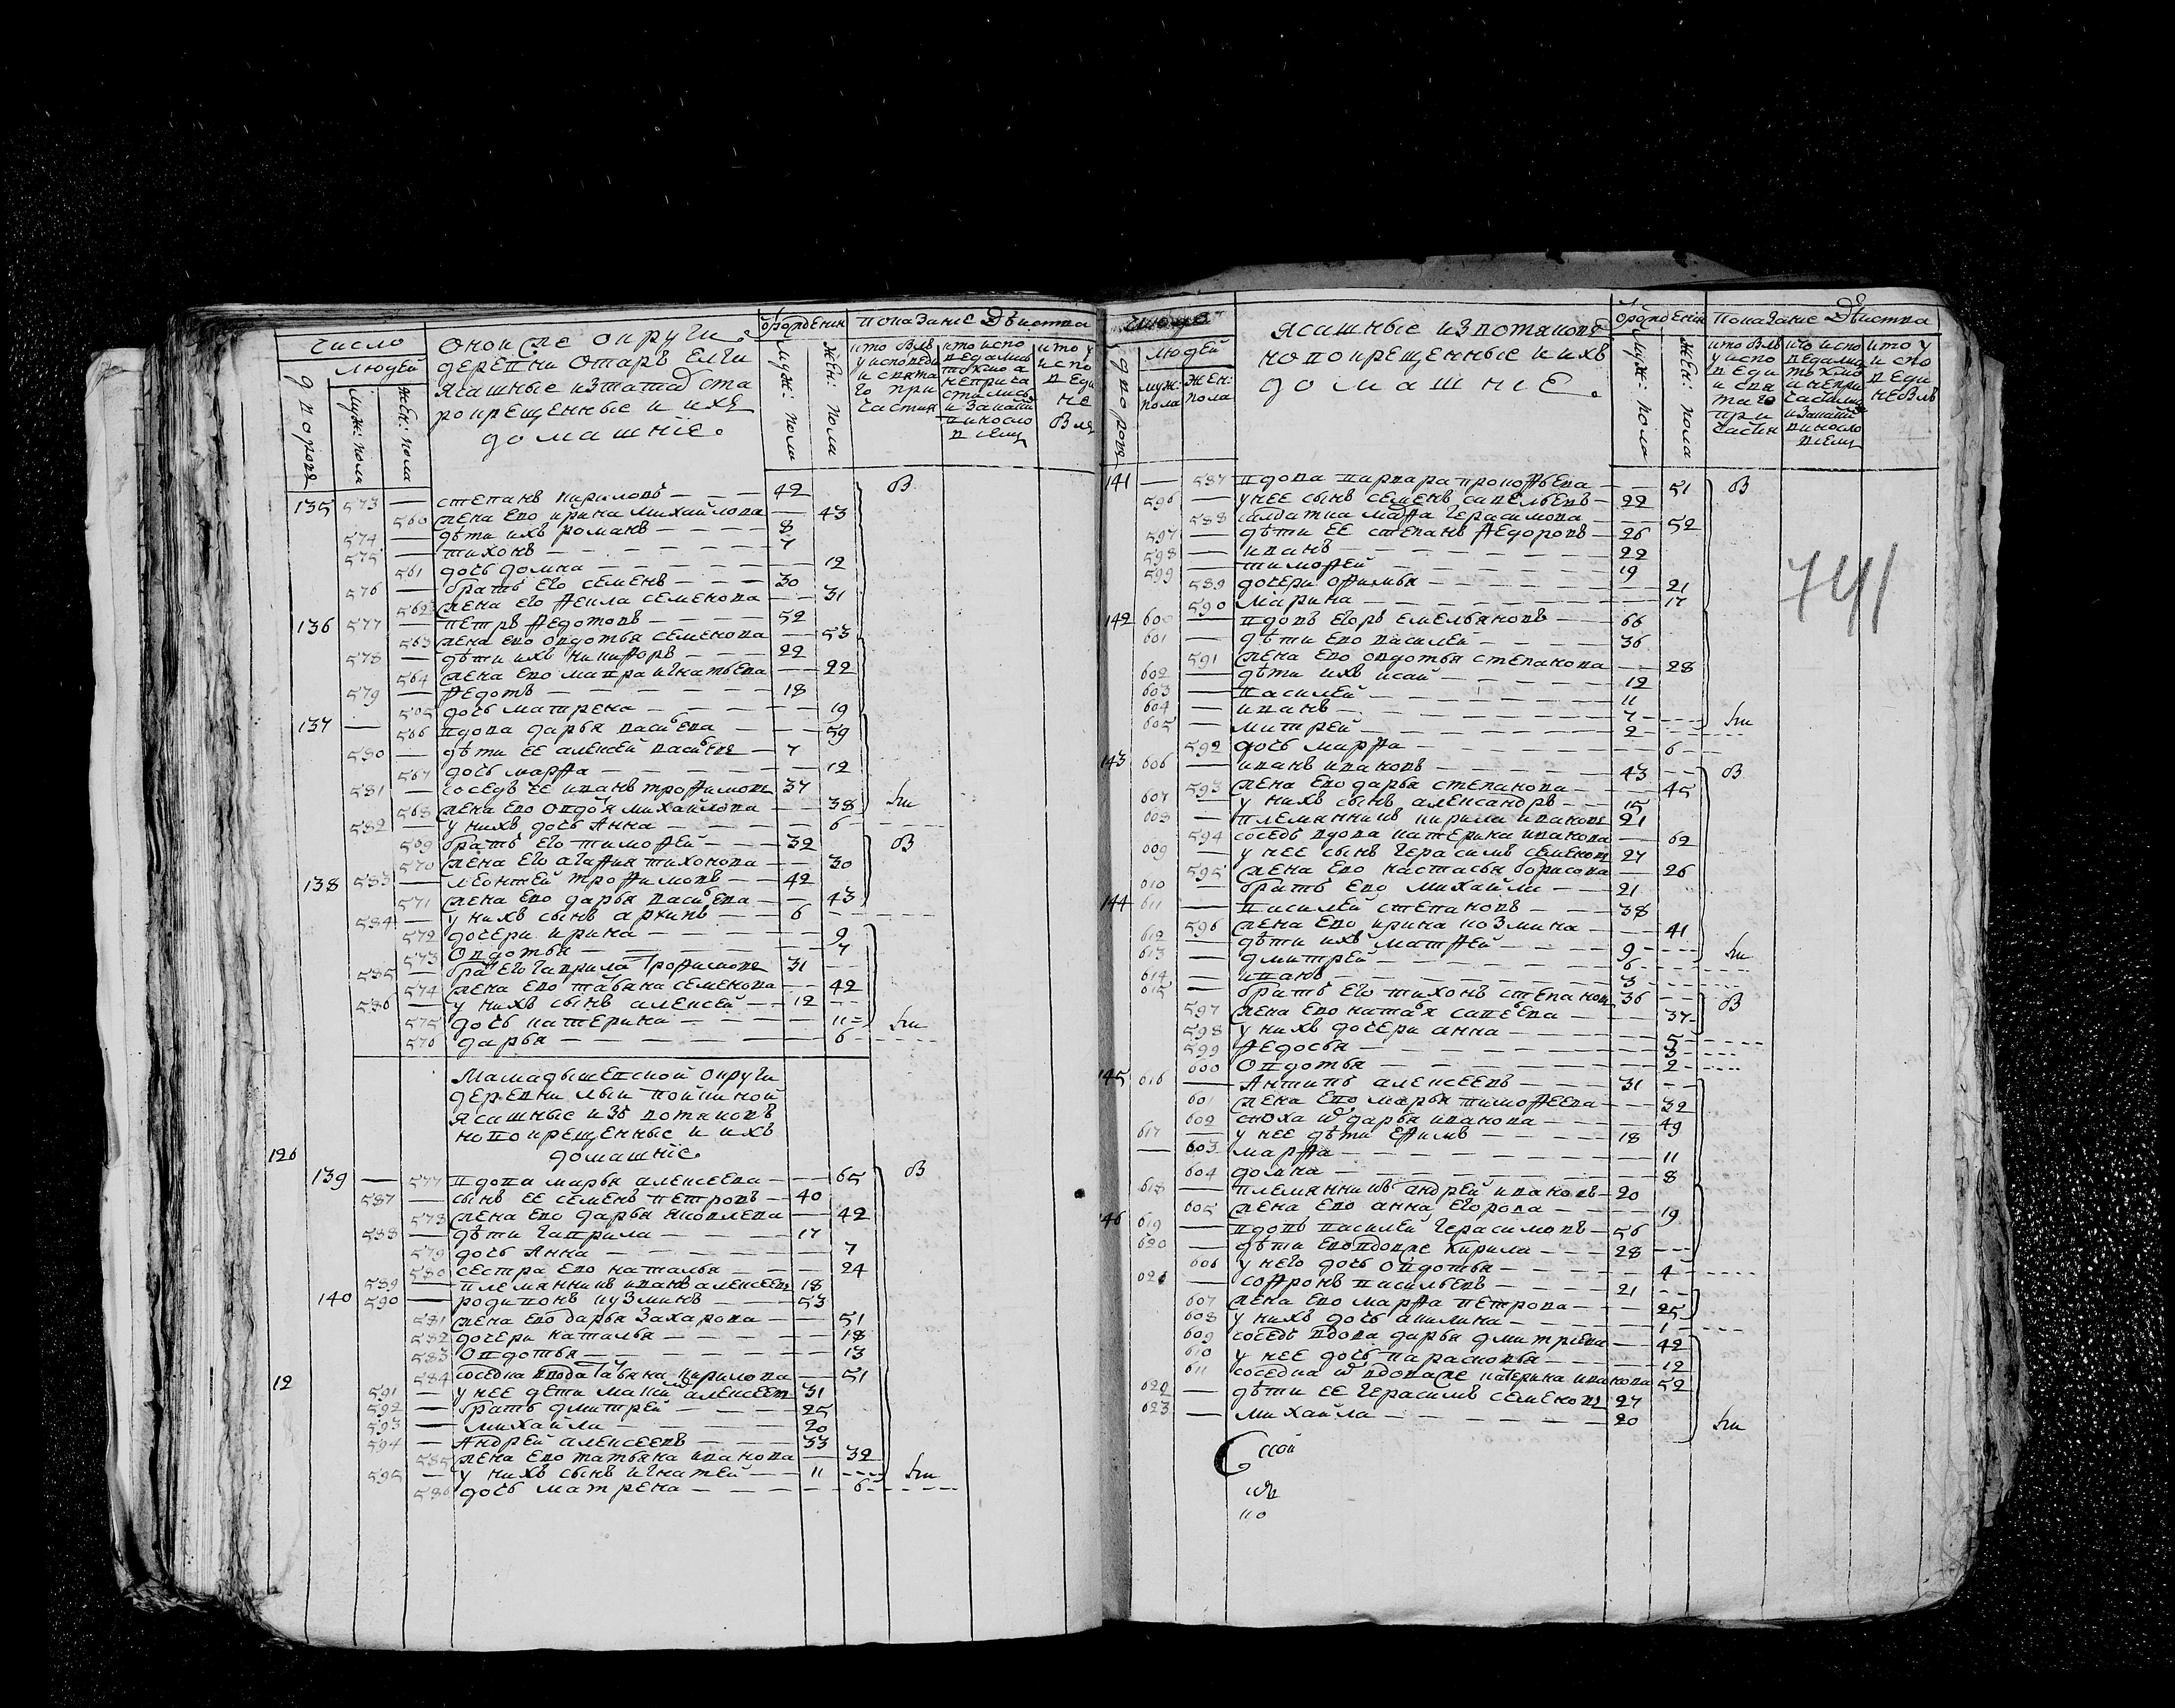 число
людей
дворов
муж: пола
жен: пола
оной же округи
деревни отаръ елги
ясашные изтатаръ ста
рокрещенные и ихъ
домашніе.
от рожденія
муж: пола
жен: пола
показаніе действа
135 573 — степанъ кириловъ — 42
560 жена ево ирина михайлова — 43
574 — дѣти ихъ романъ — 8
575 — тихонъ — 7
561 дочь домна — 12
576 — братъ его семенъ — 30
562 жена его фекла семенова — 31
136 577 — петръ федотовъ — 52
563 жена ево овдотья семенова — 53
578 — дѣти ихъ никифоръ — 22
564 жена ево мавра игнатьева — 22
579 — федотъ — 18
565 дочь матрена — 19
137 — 566 вдова дарья васильева — 59
580 — дѣти ее алексей васильевъ — 7
567 дочь марфа — 12
581 — соседъ ее иванъ трофимовъ 37
568 жена ево овдотья михайлова — 38
582 — у нихъ дочь анна — 6
569 братъ его тимофей — 32
570 жена его агафия тихонова — 30
138 583 — леонтей трофимовъ — 42
571 жена ево дарья васильева — 43
584 — у нихъ сынъ архипъ — 6
572 дочери ирина — 9
573 овдотья — 7
585 — братъ его гаврила трофимовъ 31
574 жена ево татьяна семенова — 42
586 — у нихъ сынъ алексей — 12
575 дочь катерина — 11
576 дарья — 6
мамадышевской округи
деревни лыи пойкиной
ясашные изъ вотяковъ
новокрещенные и ихъ
домашніе
126
139 — 577 вдова марья алексеева — 65
587 — сынъ ее семенъ петровъ — 40
578 жена ево дарья яковлева — 42
588 — дѣти гаврила — 17
579 дочь анна — 7
580 сестра ево наталья — 24
589 — племянникъ иванъ алексеевъ 18
140 590 — родивонъ кузминъ — 53
581 жена ево дарья захарова — 51
582 дочери наталья — 18
583 овдотья — 13
584 соседка вдова татьяна кирилова — 51
12
591 — у нее дети алексеевъ 31
592 — братъ дмитрей — 25
593 — михайла — 20
594 — андрей алексеевъ — 33
585 жена ево татьяна иванова — 32
595 — у нихъ сынъ игнатей — 11
586 дочь матрена — 6
число
людей
муж: пола
жен: пола
ясашные извотяковъ
новокрещенные и ихъ
домашние.
от рождения
муж: пола
жен: пола
показание действа
741
141 — 587 вдова варвара прокофьева — 51
596 — у нее сынъ семенъ савельевъ — 22
588 салдатка марфа герасимова — 52
597 — дѣти ее степанъ федоровъ — 26
598 — иванъ — 22
599 — тимофей — 19
589 дочери офимья — 21
590 марина — 17
142 600 — вдовъ егоръ емельяновъ — 66
601 — дѣти ево василей — 36
591 жена ево овдотья степанова — 28
602 — дѣти ихъ исай — 12
603 — василей — 11
604 — иванъ — 7
605 — митрей — 2
592 дочь марфа — 6
143 606 — иванъ ивановъ — 43
593 жена ево дарья степанова — 45
607 — у нихъ сынъ александръ — 15
608 — племянникъ кирила ивановъ 21
594 соседъ вдова катерина иванова — 62
609 — у нее сынъ герасимъ семеновъ 27
595 жена ево настасья борисова — 26
610 — братъ ево михайла — 21
144 611 — василей степановъ — 38
596 жена ево ирина козмина — 41
612 — дѣти ихъ матфей — 9
613 — дмитрей — 6
614 — иванъ — 3
615 — братъ его тихонъ степановъ 36
597 жена ево наталья савельева — 37
598 у нихъ дочери анна — 5
599 федосья — 3
600 овдотья — 2
145 616 — антипъ алексеевъ — 31
601 жена ево марья тимофеева — 32
602 сноха вдова дарья иванова — 49
617 — у нее дѣти ефимъ — 18
603 марфа — 11
604 домна — 8
618 — племянникъ андрей ивановъ — 20
605 жена ево анна егорова — 19
146 619 — вдовъ василей герасимовъ — 56
620 — дѣти ево вдовъ же кирила — 28
606 у него дочь овдотья — 4
621 — софронъ васильевъ — 21
607 жена ево марфа петрова — 25
608 у нихъ дочь акилина — 1
609 соседъ вдова дарья дмитриева — 42
610 у нее дочь парасковья — 12
611 соседка вдова же катерина иванова 52
622 — дѣти ее герасимъ семеновъ 27
623 — михайла — 20